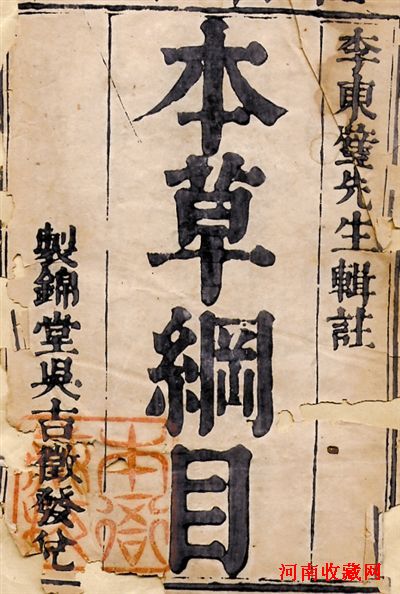 李東璧先生輯註
本草綱目
製錦堂吳吉徵發兌
本衙
河南收藏网